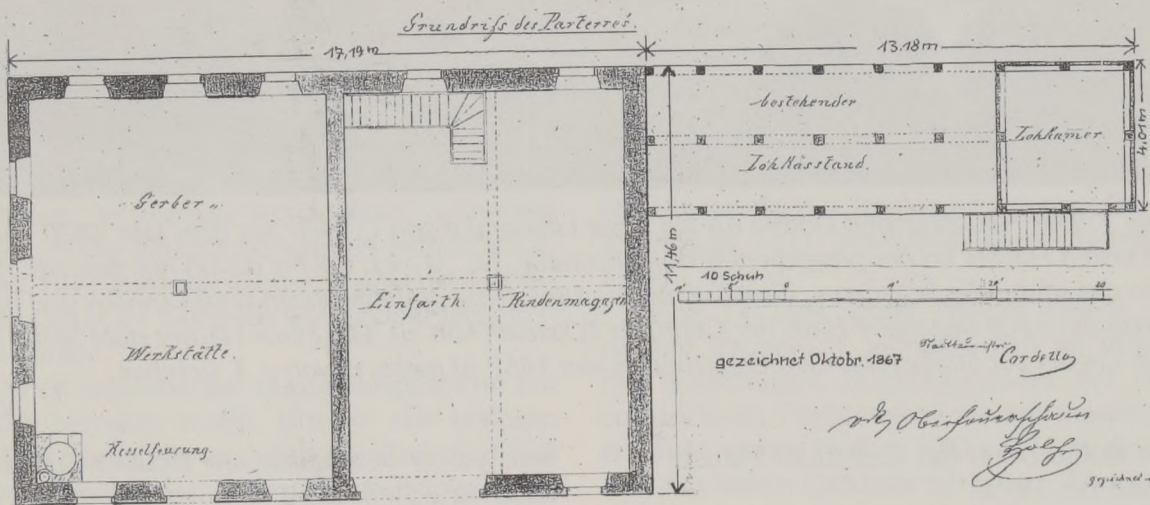 Grundriſs des Parterre's.
17,19 m
13.18 m
bestehender
Lohkässtand.
Lohkamer
4.01m
11,46 m
Gerber „
Werkstätte.
Kesselfeuerung.
Einfaith.
Rindenmagazin
10 Schuh
10' 5' 0 10' 20' 30
gezeichnet Oktobr. 1867
Cordella
gezeichnet